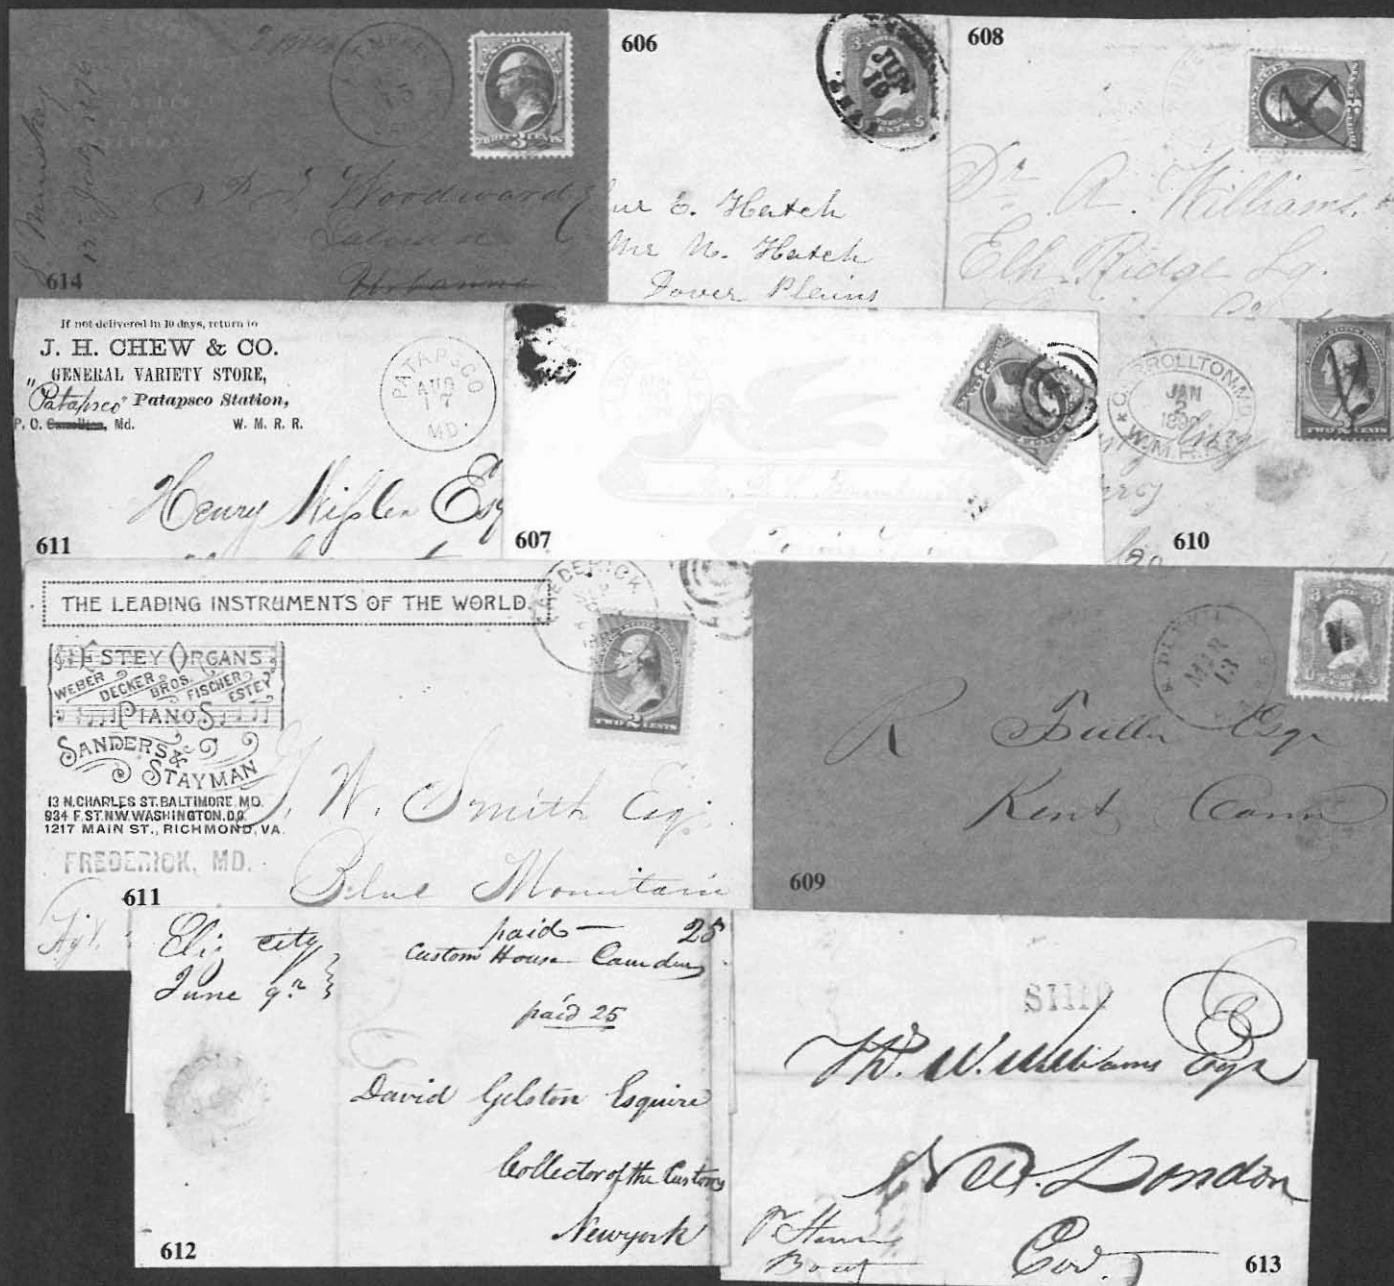 614
Woodward
3 CENTS
606
JUN
19
E. Hatch
N. Hatch
Dover Plains
608
Dr. A. Williams.
Elk Ridge Lg.
If not delivered in 10 days, return to
J. H. CHEW & CO.
GENERAL VARIETY STORE,
"Patapsco" Patapsco Station,
P. O. Md. W. M. R. R.
PATAPSCO
AUG
17
MD.
Henry Nissler Esq
611
607
CARROLLTON MD
JAN
2
W.M.R.R.
TWO 2 CENTS
610
THE LEADING INSTRUMENTS OF THE WORLD.
ESTEY ORGANS
WEBER DECKER BROS. FISCHER ESTEY
PIANOS
SANDERS &
STAYMAN
13 N. CHARLES ST. BALTIMORE, MD.
934 F. ST. N.W. WASHINGTON, D.C.
1217 MAIN ST., RICHMOND, VA.
FREDERICK, MD.
FREDERICK
TWO 2 CENTS
W. Smith Esq.
Blue Mountain
611
MAR
13
R Fuller Esqr
Kent Conn
609
Eliz city
June 9th
paid — 25
Custom House Camden
paid 25
David Gelston Esquire
Collector of the Customs
Newyork
612
SHIP
Thos. W. Williams Esqr
New London
Boat
613